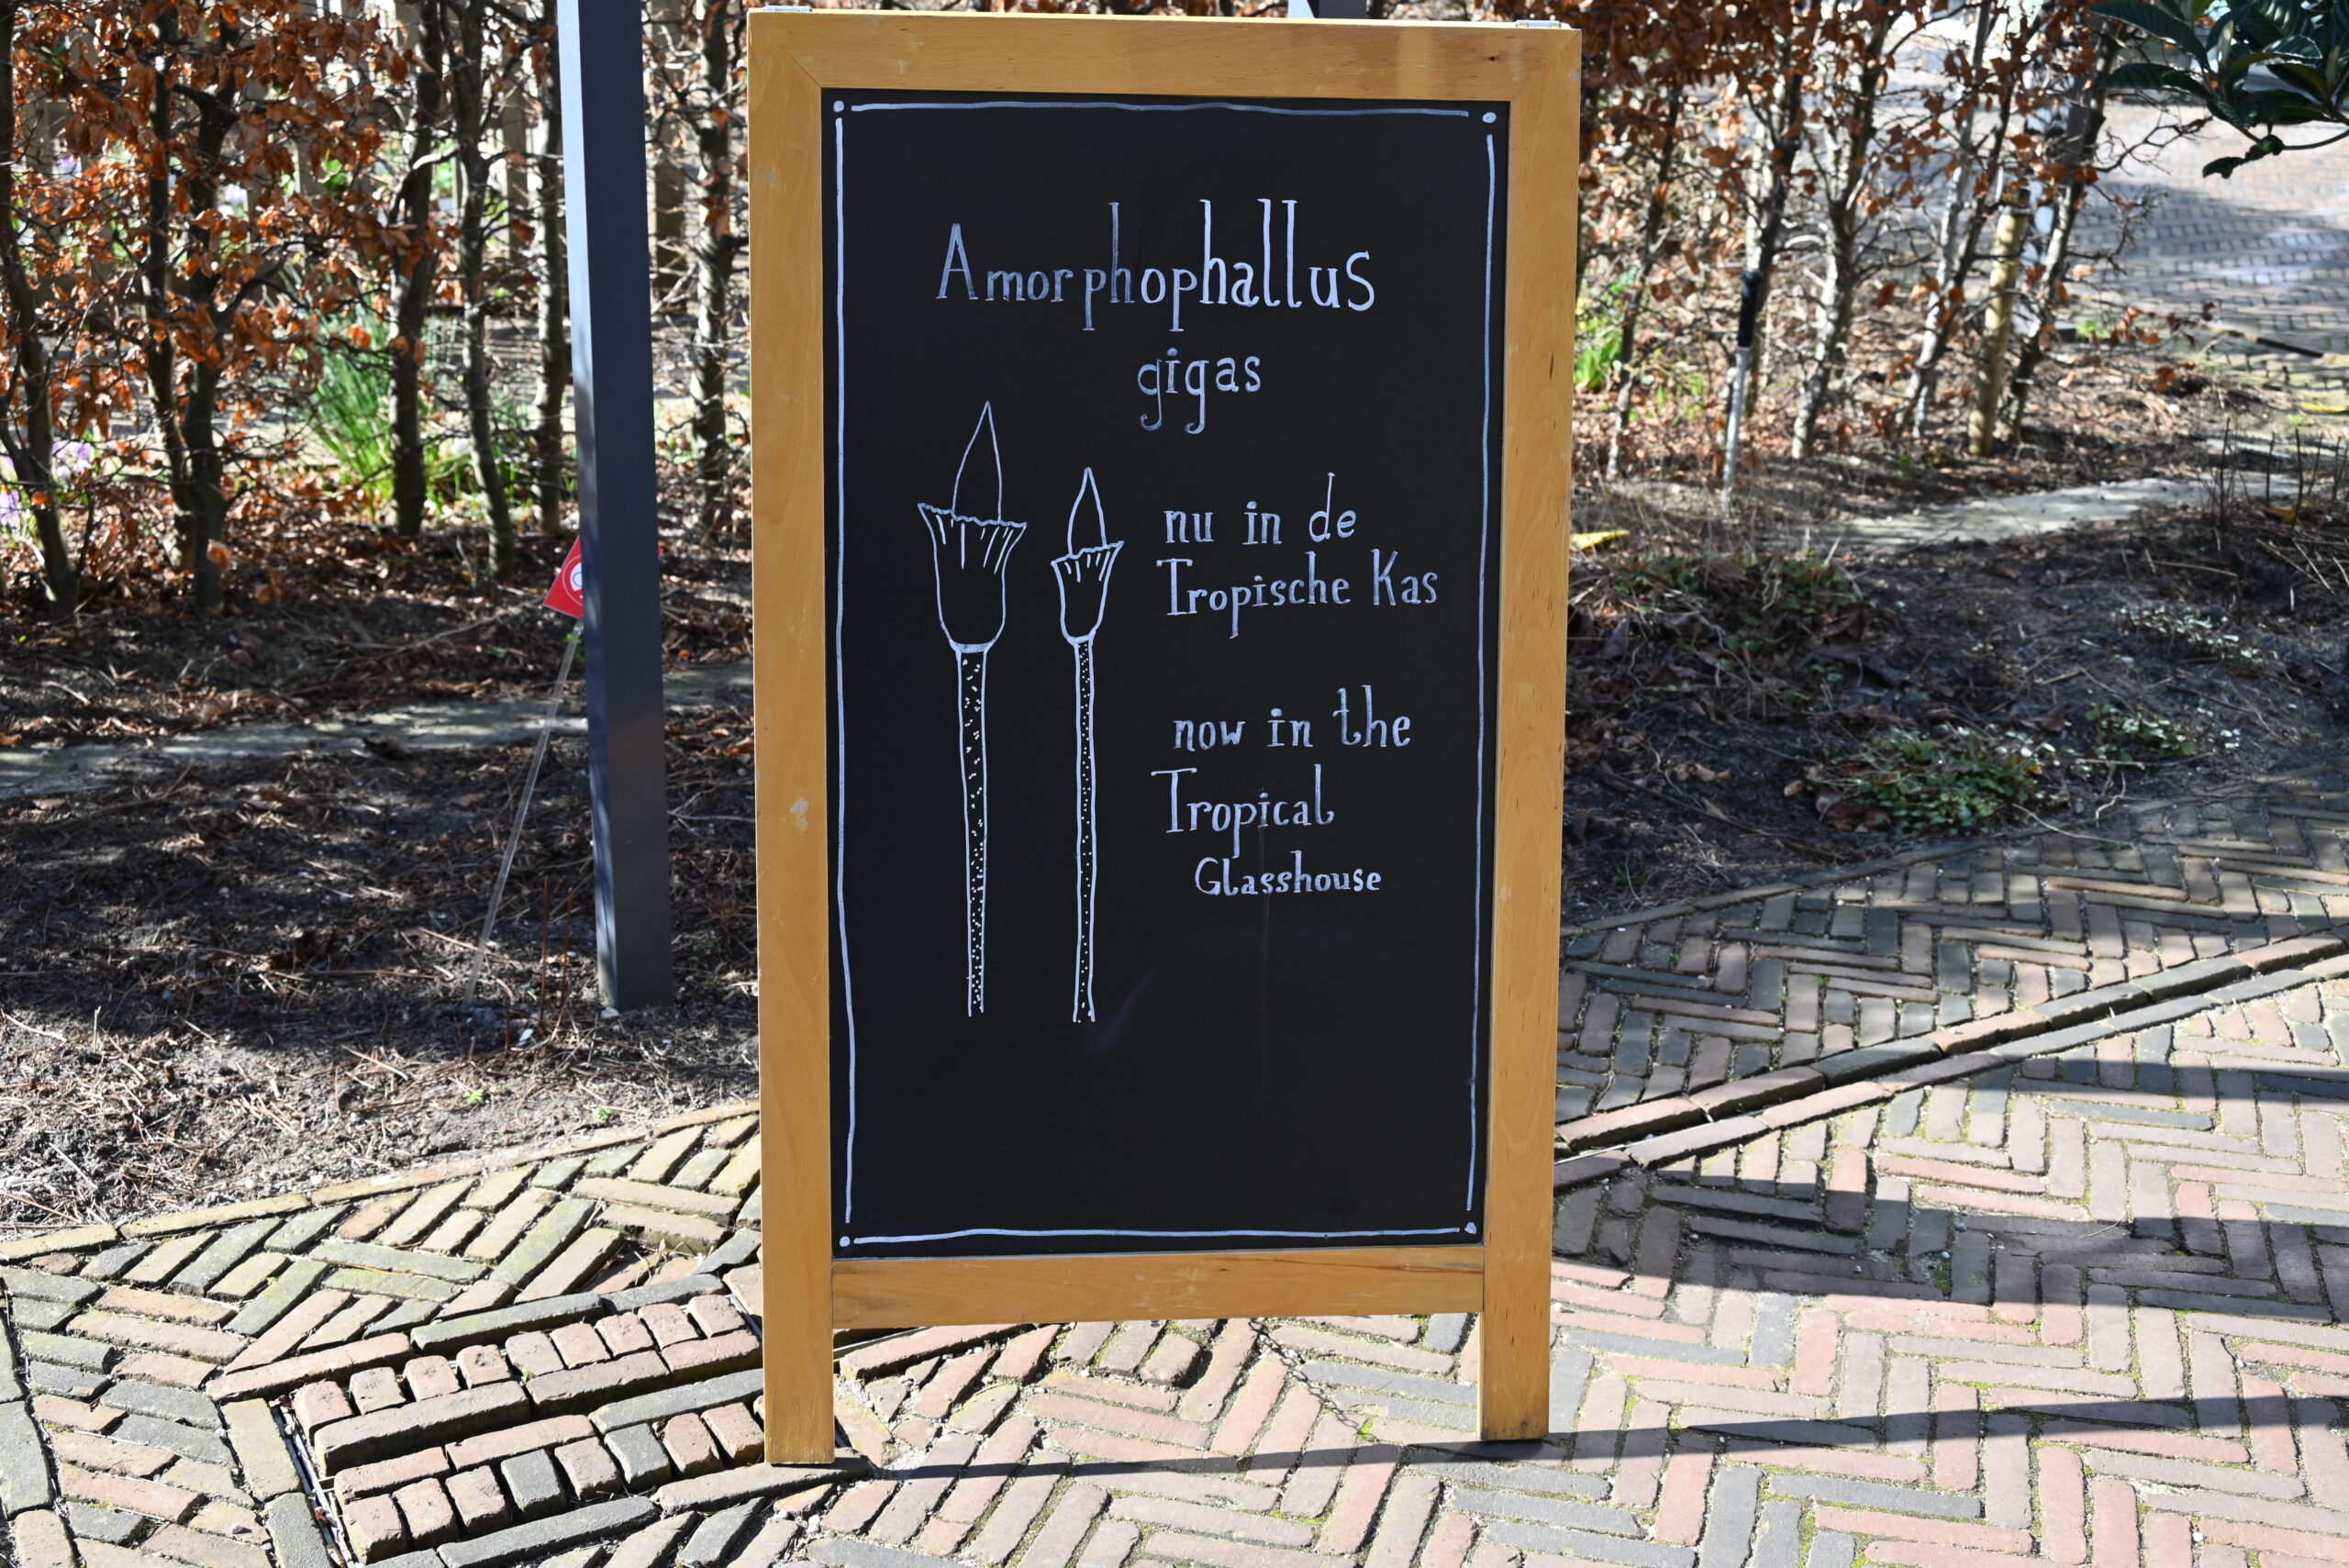 Amorphophallus
gigas
nu in de
Tropische Kas
now in the
Tropical
Glasshouse